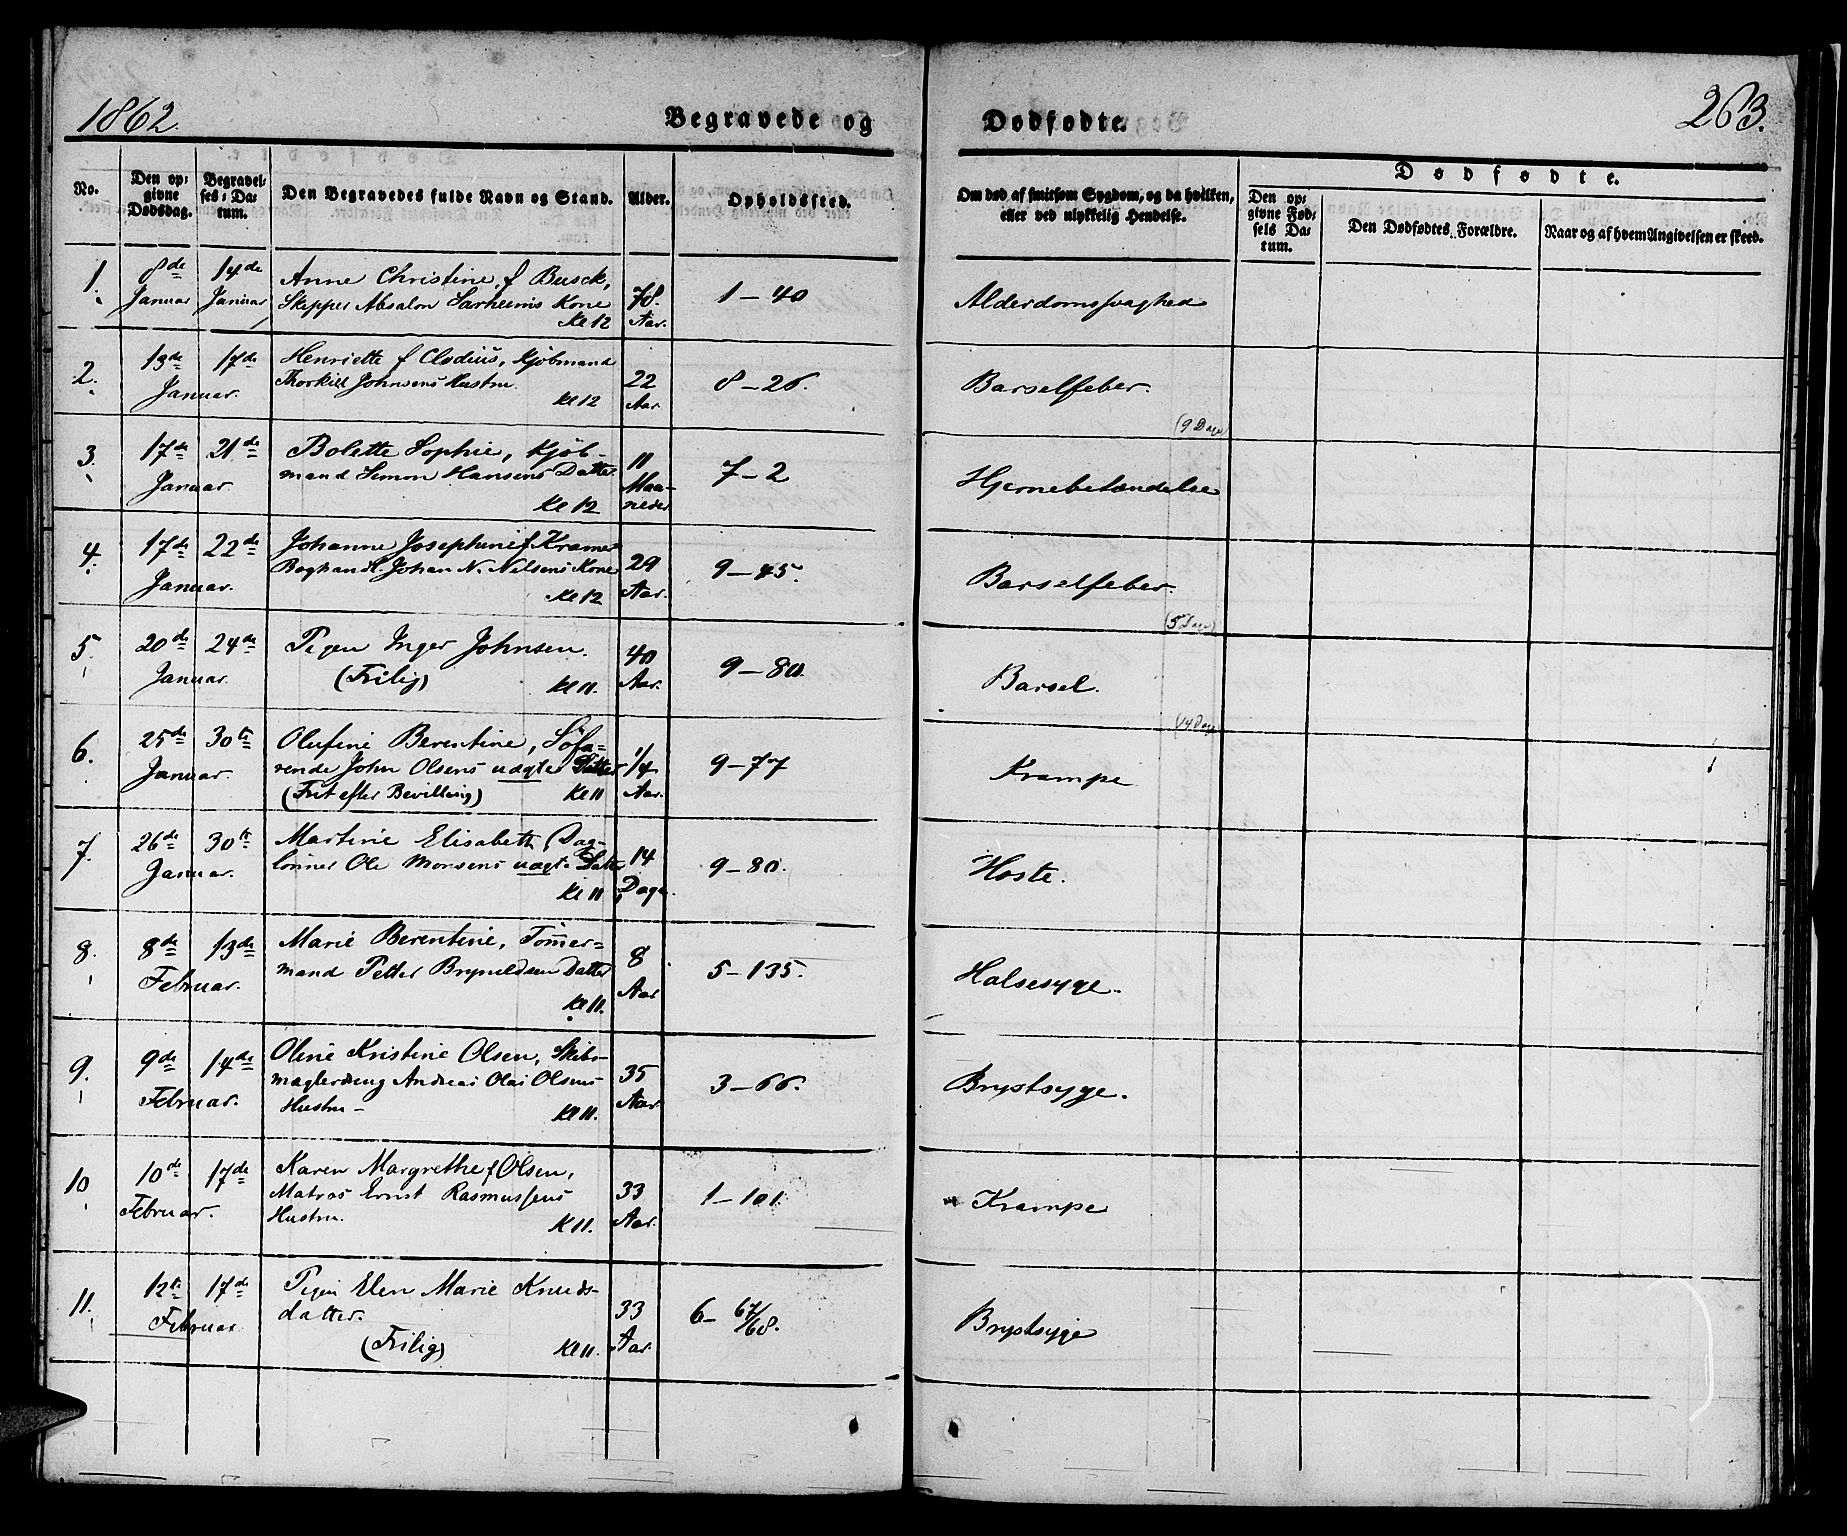 1862. Begravede og Dødfødte. 263.
No.
Den opgivne Dødsdag.
Begravelses-Datum.
Den Begravedes fulde Navn og Stand.
Alder.
Opholdssted.
Om død af smitsom Sygdom, og da hvilken, eller ved ulykkelig Hendelse.
Dødfødte.
Den opgivne Fødsels Datum.
Den Dødfødtes Forældre.
Naar og af hvem Angivelsen er skeed.
1. 8de Januar 14de Januar
Anne Christine f Busck,
Skipper Absalon Sørheims Kone
Kl 12
78. Aar. 1-40 Alderdomssvaghed
2. 13de 17de Januar.
Henriette f Clodius, Kjøbmand
Thorkill Johnsens Hustru.
Kl 12
22 Aar. 8-26. Barselfeber.
(9 Dage)
3. 17de 21de Januar.
Bolette Sophie, Kjøb-
mand Simon Hansens Datter
Kl 12
11 Maaneder 7-2 Hjernebetændelse
4. 17de 22de Januar.
Johanne Josephine f Kramer
Boghandl. Johan N. Nilsens Kone
Kl 12
29 Aar. 9-45. Barselfeber.
(5 Dage)
5. 20de 24de Januar.
Pigen Inger Johnsen.
(Frilig) Kl 11.
40 Aar. 9-80. Barsel.
(14 Dage
6. 25de 30te Januar.
Olufine Berentine, Søfa-
rende John Olsens uægte Datter
(Frit efter Bevilling) Kl 11
1/4 Aar. 9-77 Krampe
7. 26de 30te Januar.
Martine Elisabeth, Dag-
lønner Ole Monsens uægte Datter
Kl 11
14 Dage. 9-80. Hoste.
8. 8de 13de Februar.
Marie Berentine, Tømer-
mand Petter Brynildsen Datter
Kl 11.
8 Aar 5-135. Halsesyge.
9. 9de 14de Februar.
Oline Kristine Olsen, Skibs-
mæglerdreng Andreas Olai Olsens
Hustru- Kl 11.
35 Aar. 3-66. Brystsyge.
10 10de 17de Februar.
Karen Margrethe f Olsen,
Matros Ernst Rasmussens
Hustru. Kl 11.
33 Aar. 1-101. Krampe
11. 12te 17de Februar
Pigen Elen Marie Knuds-
datter.
(Frilig) Kl 11.
33 Aar. 6-67/68. Brystsyge